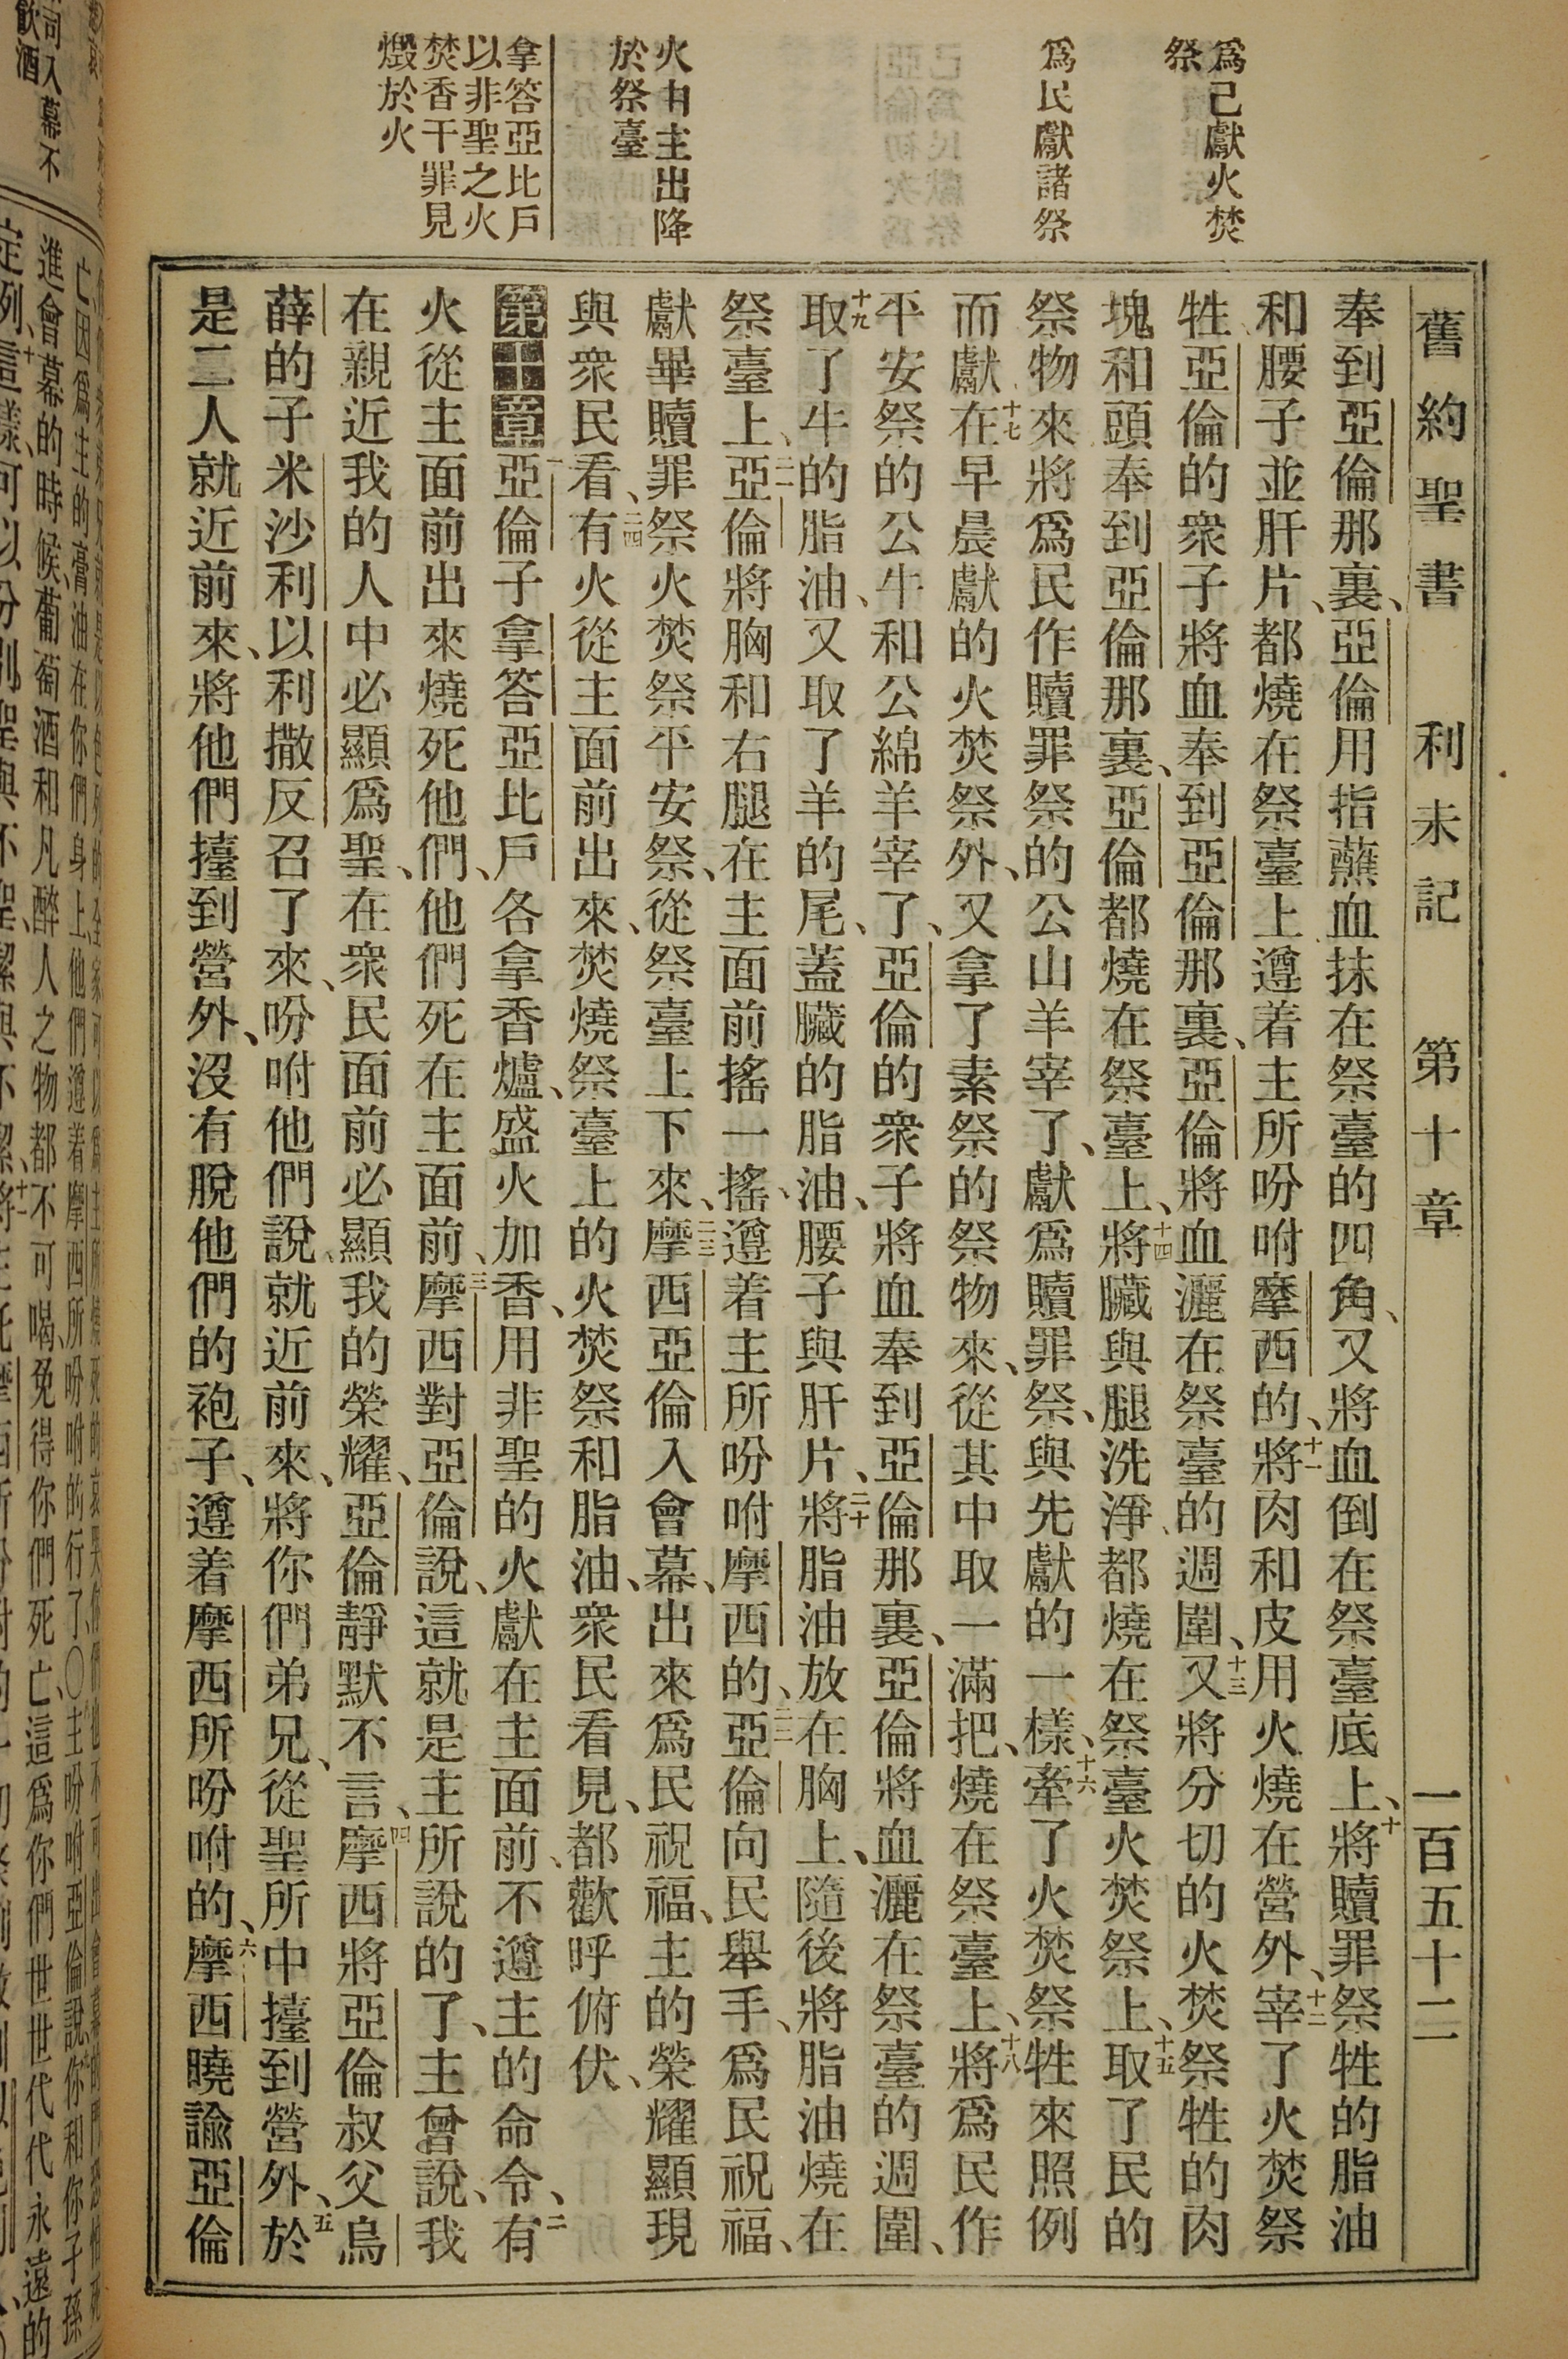 舊約聖書 利未記 第十章 一百五十二
為己獻火焚
祭
為民獻諸祭
火由主出降
於祭臺
拿答亞比戶
以非聖之火
焚香干罪見
燬於火
奉到亞倫那裏、亞倫用指蘸血抹在祭臺的四角、又將血倒在祭臺底上、十將贖罪祭牲的脂油
和腰子並肝片、都燒在祭臺上遵着主所吩咐摩西的、十一將肉和皮用火燒在營外、十二宰了火焚祭
牲、亞倫的衆子將血奉到亞倫那裏、亞倫將血灑在祭臺的週圍、十三又將分切的火焚祭牲的肉
塊和頭奉到亞倫那裏、亞倫都燒在祭臺上、十四將臟與腿洗淨、都燒在祭臺火焚祭上、十五取了民的
祭物來將爲民作贖罪祭的公山羊宰了、獻爲贖罪祭、與先獻的一樣、十六牽了火焚祭牲來照例
而獻、十七在早晨獻的火焚祭外、又拿了素祭的祭物來、從其中取一滿把、燒在祭臺上、十八將爲民作
平安祭的公牛和公綿羊宰了、亞倫的衆子將血奉到亞倫那裏、亞倫將血灑在祭臺的週圍、
十九取了牛的脂油、又取了羊的尾、蓋臟的脂油、腰子與肝片、二十將脂油放在胸上、隨後將脂油燒在
祭臺上、二一亞倫將胸和右腿在主面前搖一搖、遵着主所吩咐摩西的、二二亞倫向民舉手、爲民祝福、
獻畢贖罪祭火焚祭平安祭、從祭臺上下來、二三摩西亞倫入會幕、出來爲民祝福、主的榮耀顯現
與衆民看、二四有火從主面前出來、焚燒祭臺上的火焚祭和脂油、衆民看見、都歡呼俯伏、
第十章 一亞倫子拿答亞比戶各拿香爐、盛火加香、用非聖的火獻在主面前、不遵主的命令、二有
火從主面前出來燒死他們、他們死在主面前、三摩西對亞倫說、這就是主所說的了、主曾說、我
在親近我的人中必顯爲聖、在衆民面前必顯我的榮耀、亞倫靜默不言、四摩西將亞倫叔父烏
薛的子米沙利以利撒反召了來、吩咐他們說、就近前來、將你們弟兄、從聖所中擡到營外、五於
是二人就近前來、將他們擡到營外、沒有脫他們的袍子、遵着摩西所吩咐的、六摩西曉諭亞倫